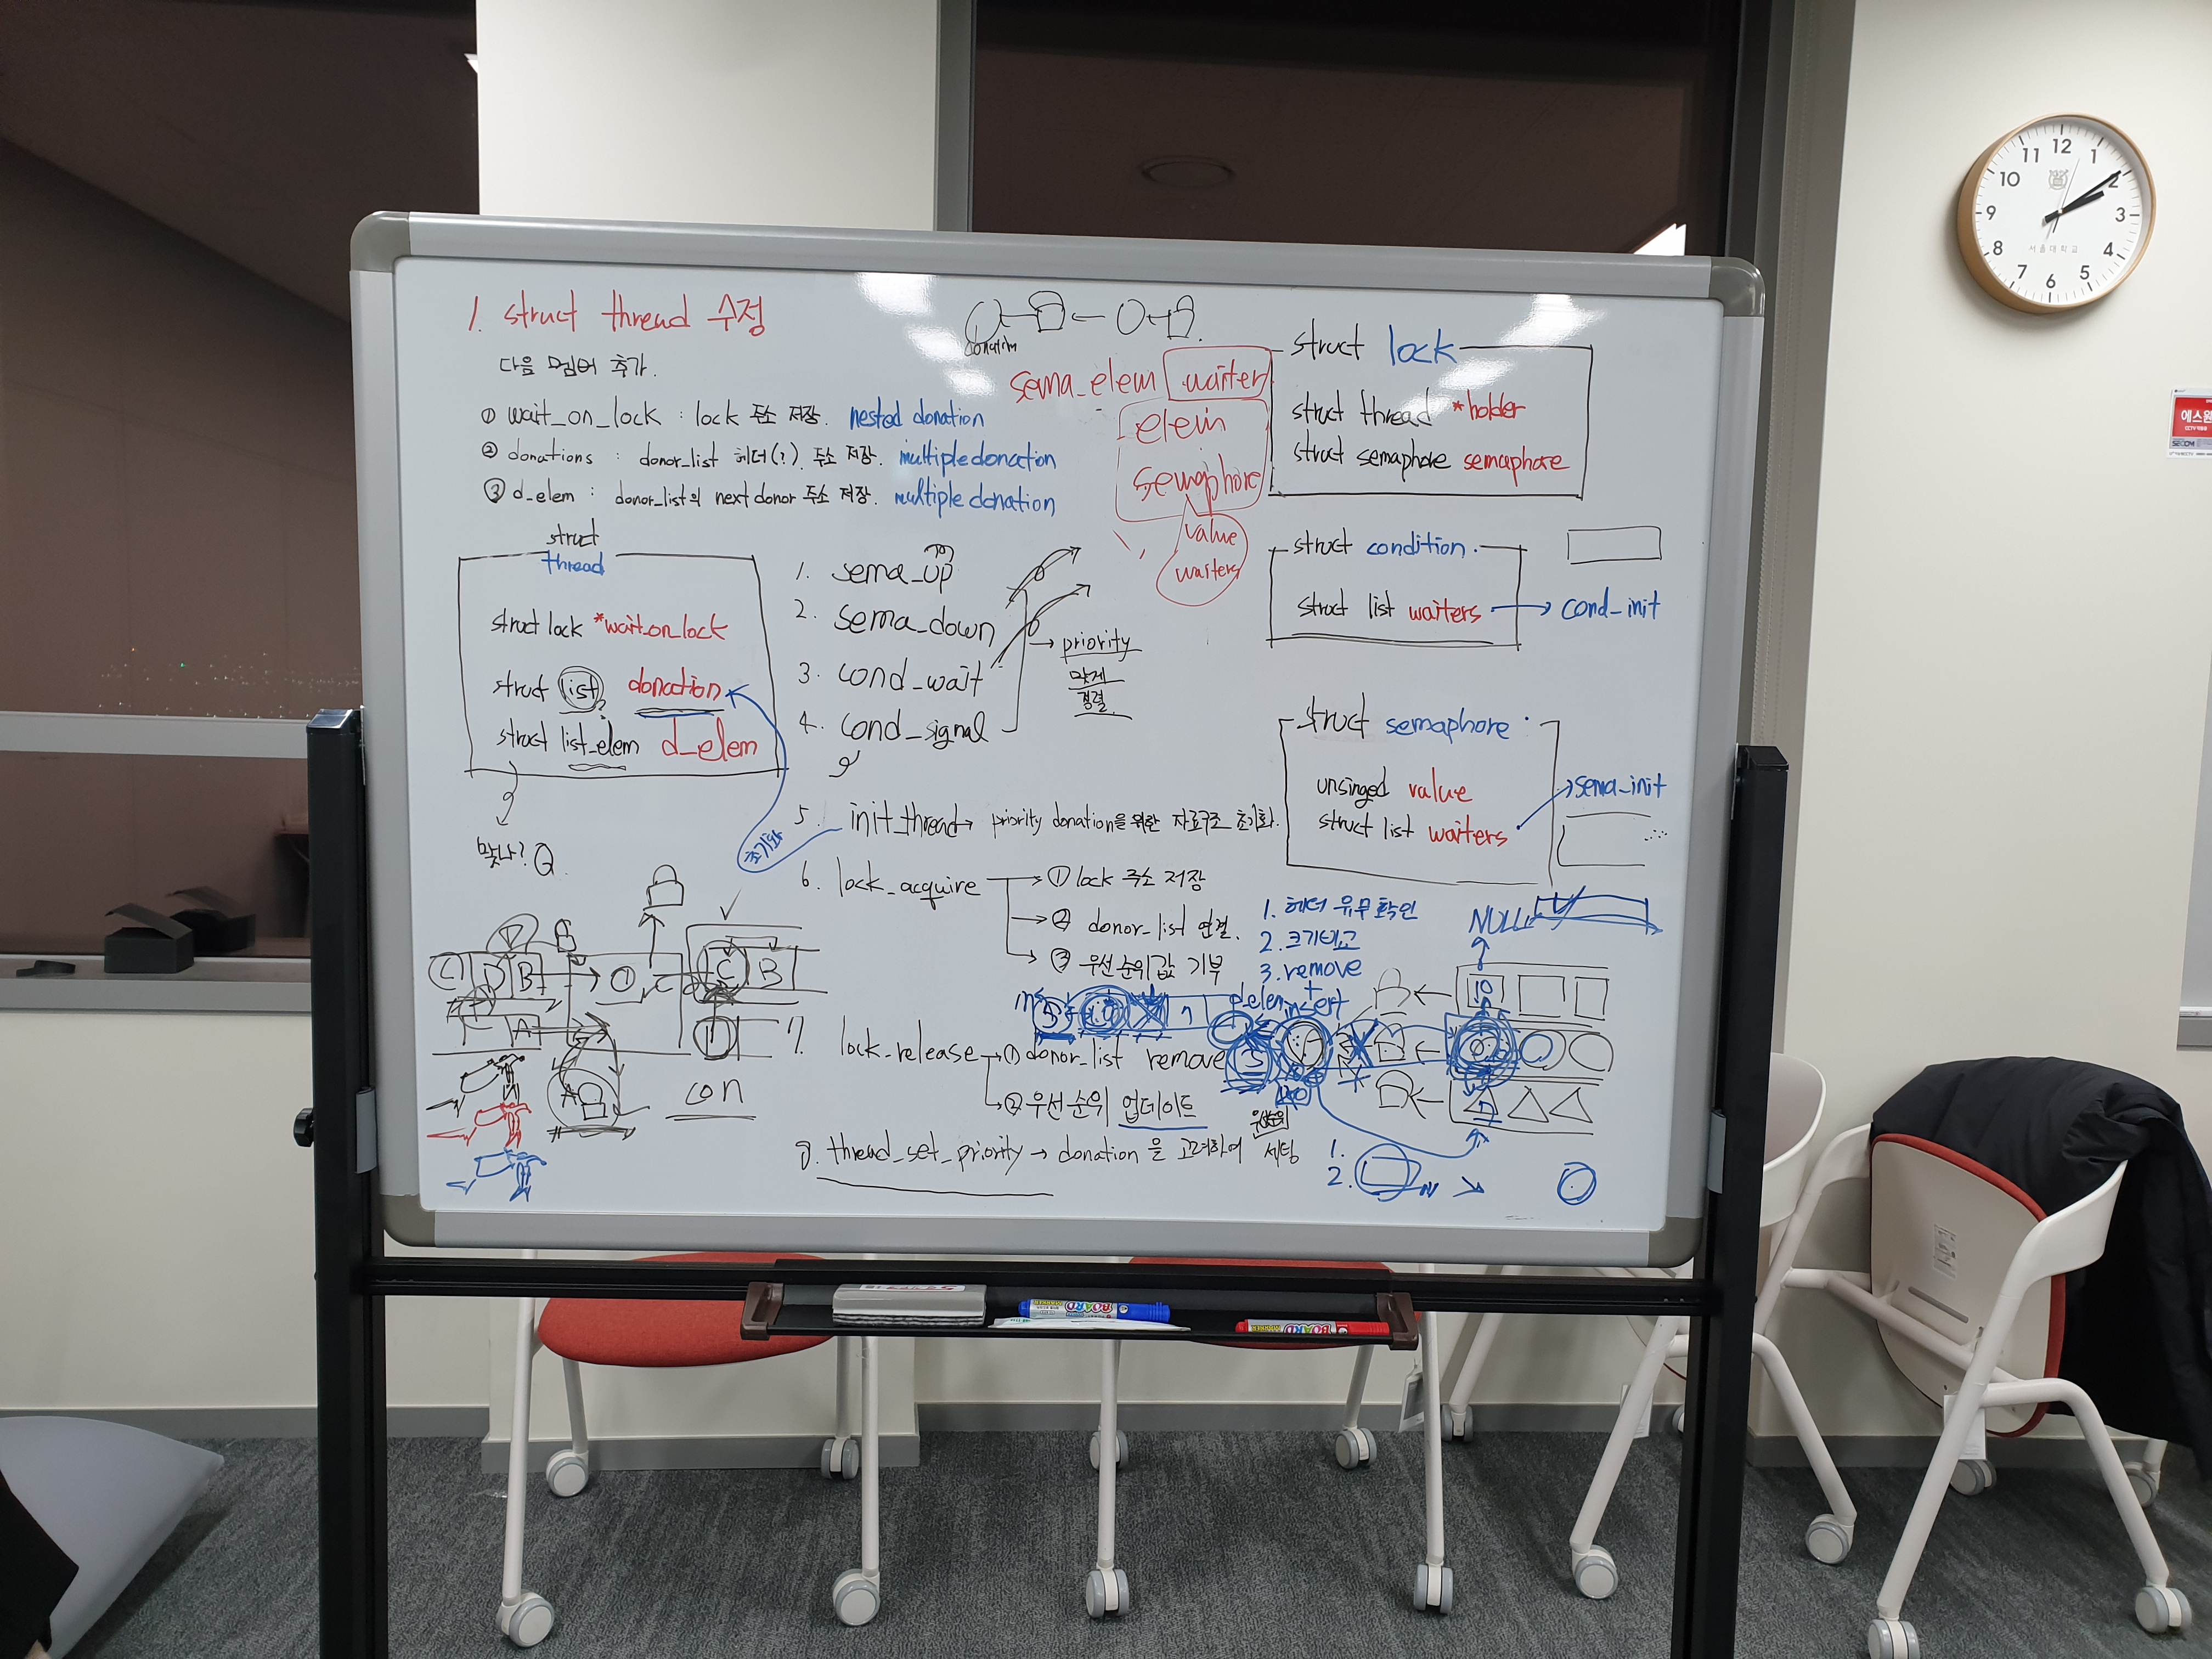 1. struct thread 수정
다음 멤버 추가.
① wait_on_lock : lock 주소 저장. nested donation
② donations : donor_list 헤더(?). 주소 저장. multiple donation
③ d_elem : donor_list의 next donor 주소 저장. multiple donation
struct thread
struct lock *wait_on_lock
struct list donation
?
struct list_elem d_elem
맞나? Q
1. sema_up
2. sema_down
3. cond_wait
4. cond_signal
priority
맞게
정렬
5. init_thread → priority donation을 위한 자료구조 초기화.
초기화
6. lock_acquire → ① lock 주소 저장
② donor_list 연결.
③ 우선순위값 기부
7. lock_release → ① donor_list remove
② 우선순위 업데이트
8. thread_set_priority → donation을 고려하여 우선순위 세팅
donation
sema_elem waiter
elem
semaphore
value
waiters
struct lock
struct thread *holder
struct semaphore semaphore
struct condition.
struct list waiters → cond_init
struct semaphore :
unsinged value
struct list waiters → sema_init
1. 헤더 유무 확인
2. 크기비교
3. remove
+
d_elem insert
NULL
C D B
C B
A
con
10
1.
2.
12 1 2 3 4 5 6 7 8 9 10 11
서울대학교
에스원
CCTV 작동중
SECOM
BOARD MARKER
BOARD MARKER